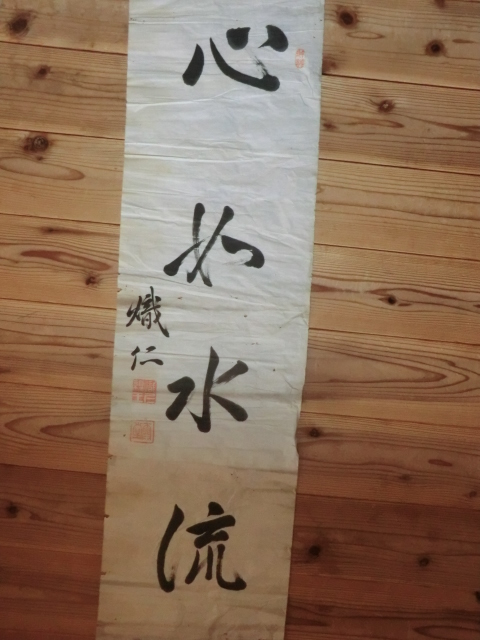 心如水流
熾仁